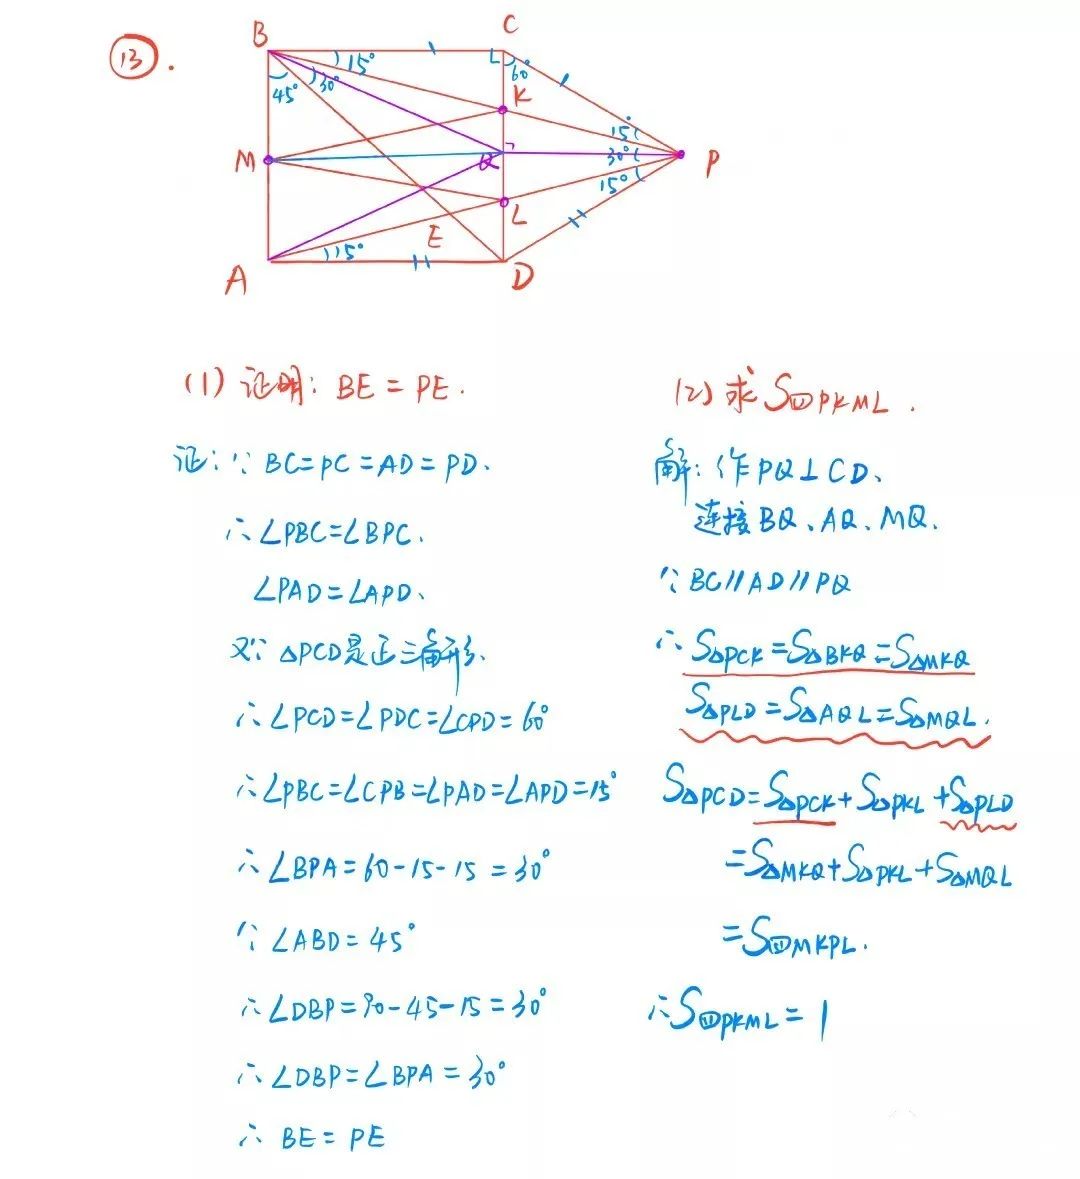 13.
B
C
15°
60°
45°
30°
K
15°
M
Q
30°
P
15°
L
E
15°
A
D
(1) 证明: BE = PE.
证: ∵ BC=PC=AD=PD.
∴ ∠PBC=∠BPC.
∠PAD=∠APD.
又∵ △PCD是正三角形.
∴ ∠PCD=∠PDC=∠CPD=60°
∴ ∠PBC=∠CPB=∠PAD=∠APD=15°
∴ ∠BPA=60-15-15=30°
∵ ∠ABD=45°
∴ ∠DBP=90-45-15=30°
∴ ∠DBP=∠BPA=30°
∴ BE=PE
(2) 求S四PKML.
解: 作PQ⊥CD、
连接BQ、AQ、MQ.
∵ BC∥AD∥PQ
∴ S△PCK=S△BKQ=S△MKQ
S△PLD=S△AQL=S△MQL.
S△PCD=S△PCK+S△PKL+S△PLD
=S△MKQ+S△PKL+S△MQL
=S四MKPL.
∴ S四PKML=1